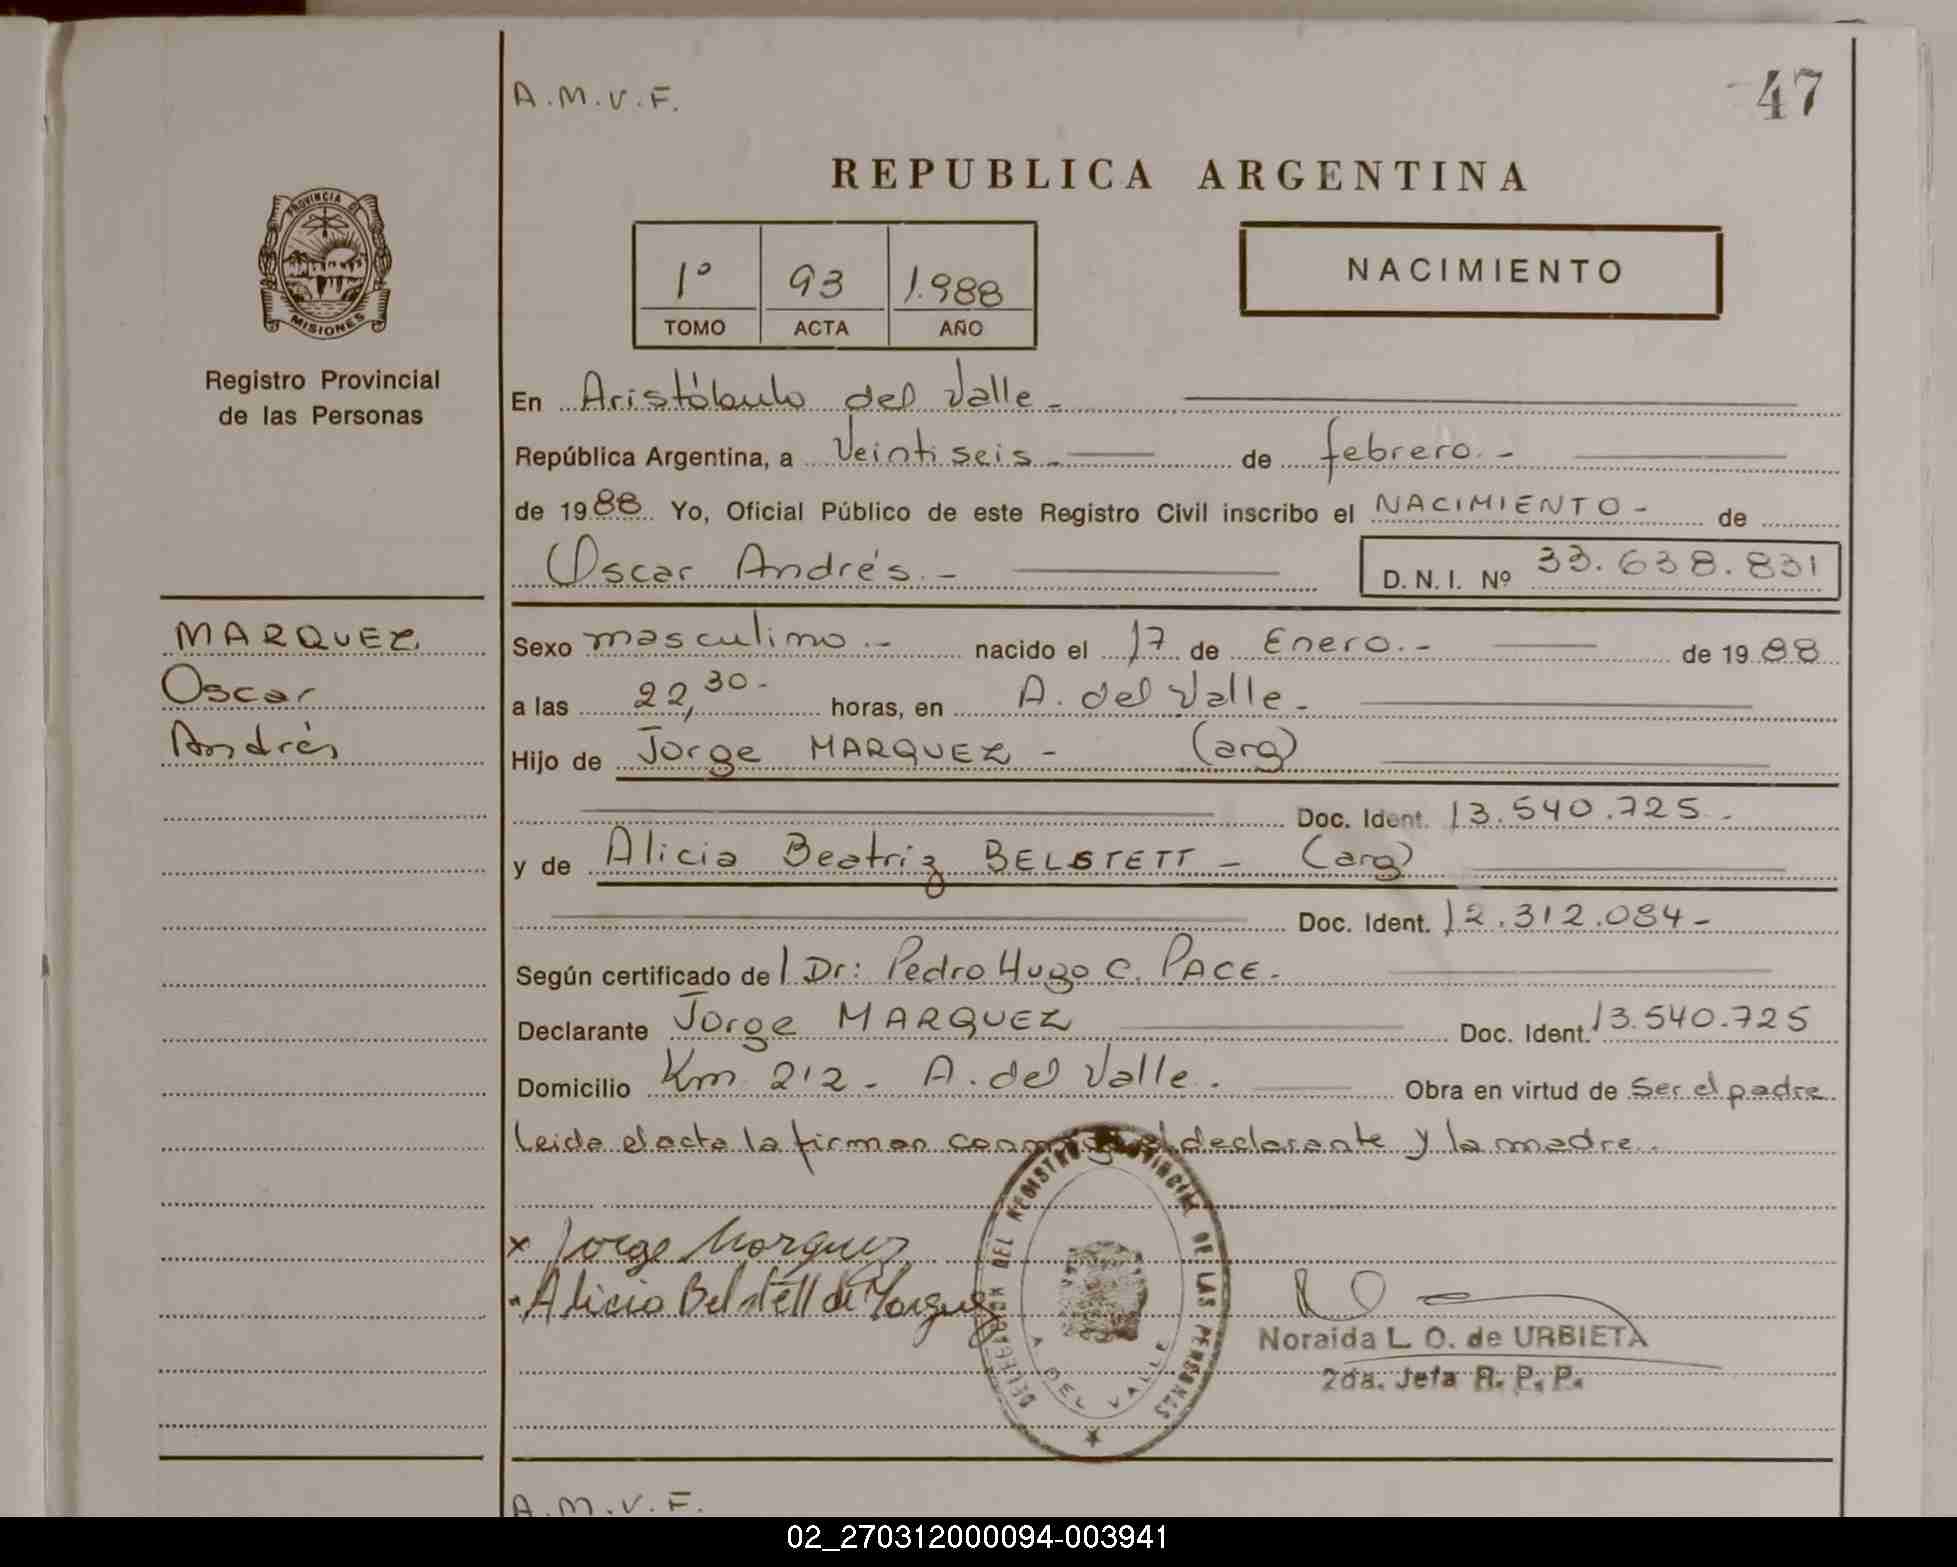 A.M.V.F.
47
REPUBLICA ARGENTINA
PROVINCIA DE
MISIONES
Registro Provincial
de las Personas
1º 93 1.988
TOMO ACTA AÑO
NACIMIENTO
En Aristóbulo del Valle.-
República Argentina, a Veintiseis.- de febrero.-
de 1988 Yo, Oficial Público de este Registro Civil inscribo el NACIMIENTO- de
Oscar Andrés.- D. N. I. Nº 33.638.831
MARQUEZ
Oscar
Andrés
Sexo masculino.- nacido el 17 de Enero.- de 1988
a las 22,30- horas, en A. del Valle.-
Hijo de Jorge MARQUEZ - (arg)
Doc. Ident. 13.540.725.-
y de Alicia Beatriz BELSTETT - (arg)
Doc. Ident. 12.312.084-
Según certificado del Dr: Pedro Hugo C. PACE.-
Declarante Jorge MARQUEZ Doc. Ident. 13.540.725
Domicilio Km 212- A. del Valle. Obra en virtud de Ser el padre
leida el acta la firman conmigo el declarante y la madre.-
x Jorge Marquez
Alicia Belstett de Marquez
DELEGACION DEL REGISTRO PROVINCIAL DE LAS PERSONAS
A. DEL VALLE
Noraida L. O. de URBIETA
2da. Jefa R. P. P.
A.M.V.F.
02_270312000094-003941